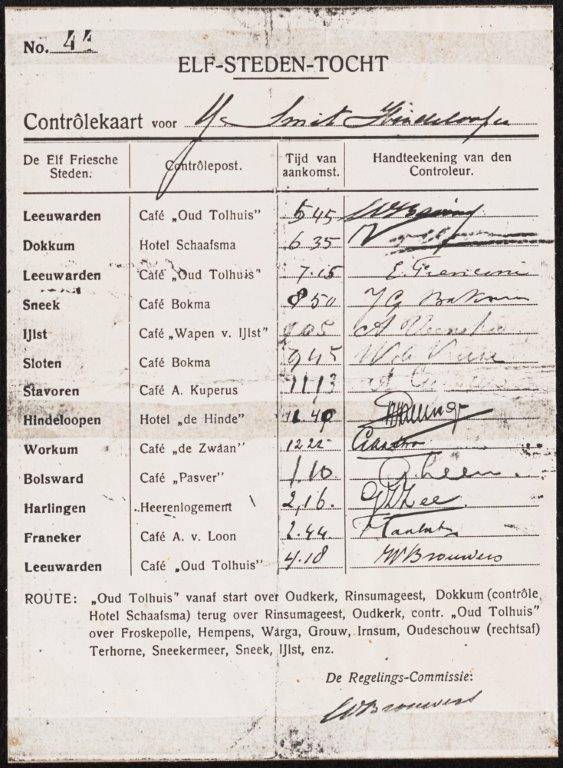 No. 44
ELF-STEDEN-TOCHT
Contrôlekaart voor Smit Hindeloopen
De Elf Friesche Steden. Contrôlepost. Tijd van aankomst. Handteekening van den Controleur.
Leeuwarden Café „Oud Tolhuis" 5 45
Dokkum Hotel Schaafsma 6 35
Leeuwarden Café „Oud Tolhuis" 7.15 E
Sneek Café Bokma 8 50 Bokma
IJlst Café „Wapen v. IJlst" 9.05
Sloten Café Bokma 9 45
Stavoren Café A. Kuperus 11.13
Hindeloopen Hotel „de Hinde" 11.40
Workum Café „de Zwaan" 12 25
Bolsward Café „Pasver" 1.10
Harlingen Heerenlogement 2,16.
Franeker Café A. v. Loon 2.44
Leeuwarden Café „Oud Tolhuis" 4.18 W Brouwers
ROUTE: „Oud Tolhuis" vanaf start over Oudkerk, Rinsumageest, Dokkum (contrôle
Hotel Schaafsma) terug over Rinsumageest, Oudkerk, contr. „Oud Tolhuis"
over Froskepolle, Hempens, Warga, Grouw, Irnsum, Oudeschouw (rechtsaf)
Terhorne, Sneekermeer, Sneek, IJlst, enz.
De Regelings-Commissie:
W Brouwers